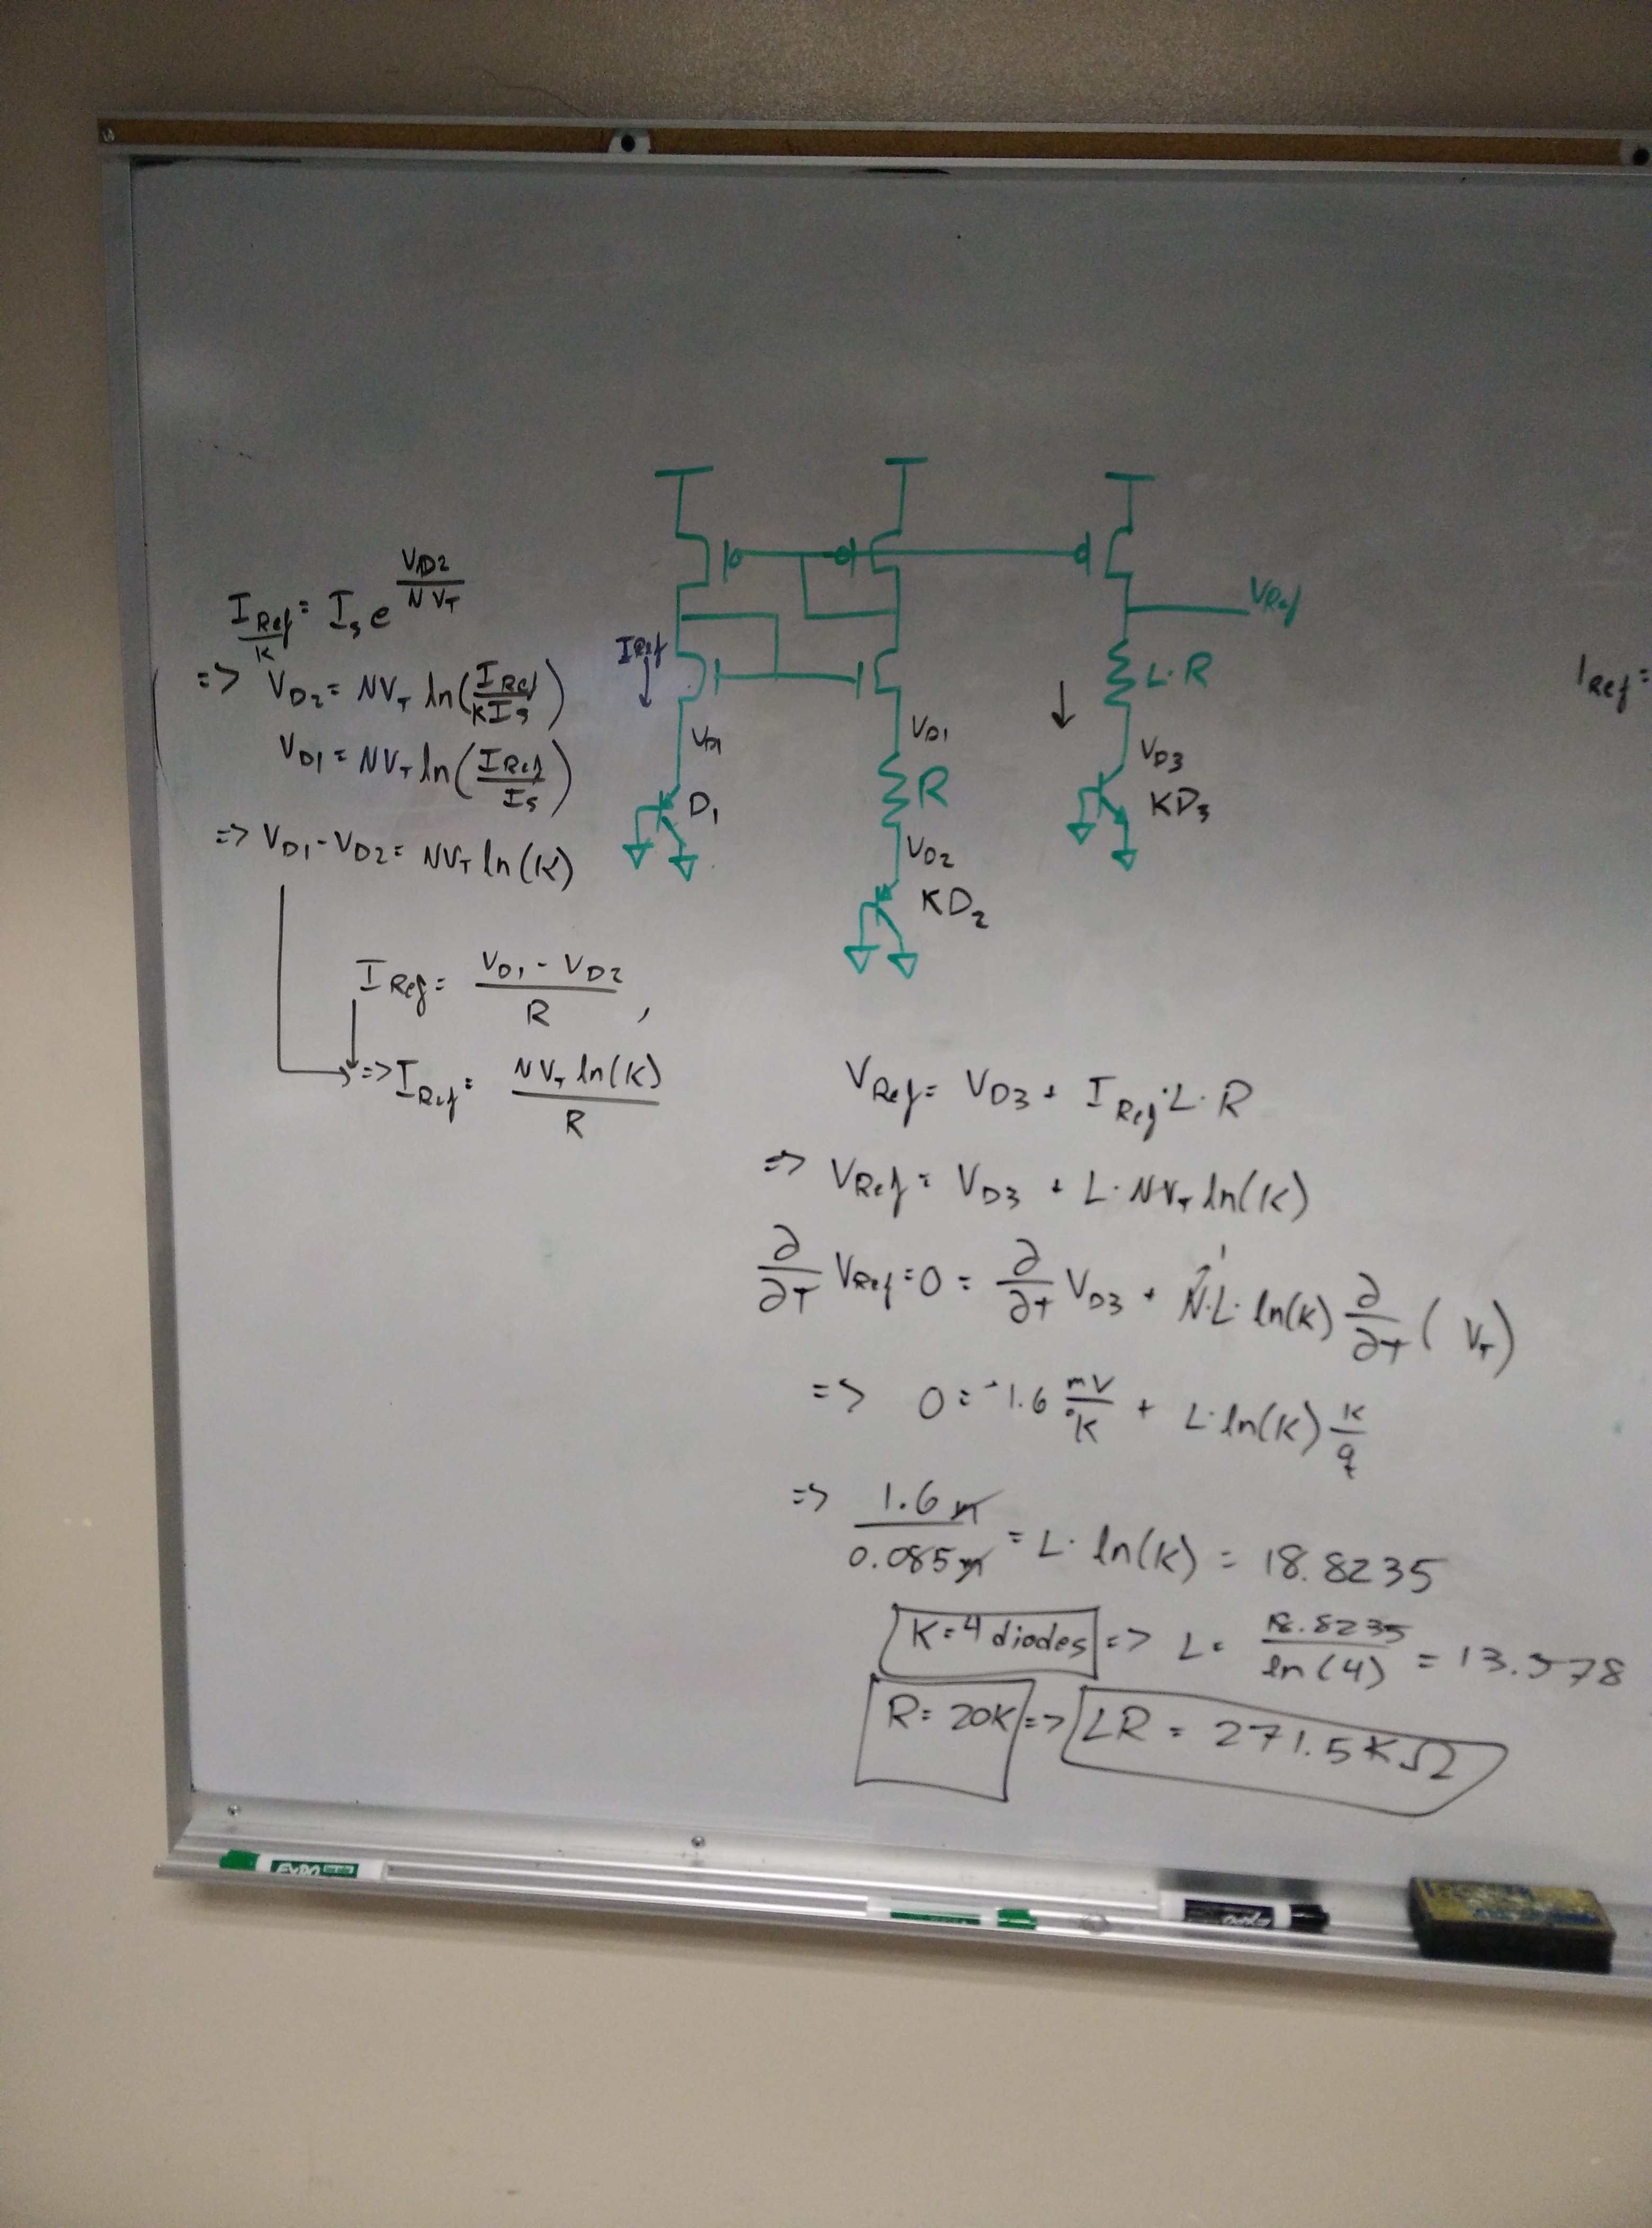 I_Ref/K = I_s e^(V_D2/(N V_T))
=> V_D2 = N V_T ln(I_Ref/(K I_s))
V_D1 = N V_T ln(I_Ref/I_s)
=> V_D1 - V_D2 = N V_T ln(K)
I_Ref = (V_D1 - V_D2)/R ,
=> I_Ref = N V_T ln(K)/R
I_Ref
V_D1
D_1
V_D1
R
V_D2
K D_2
V_Ref
L·R
V_D3
K D_3
I_Ref =
V_Ref = V_D3 + I_Ref · L · R
=> V_Ref = V_D3 + L · N V_T ln(K)
∂/∂T V_Ref = 0 = ∂/∂T V_D3 + N · L · ln(K) ∂/∂T ( V_T )
1
=> 0 = -1.6 mV/°K + L · ln(K) K/q
=> 1.6 m / 0.085 m = L · ln(K) = 18.8235
K = 4 diodes => L = 18.8235/ln(4) = 13.578
R = 20K => LR = 271.5 K Ω
EXPO